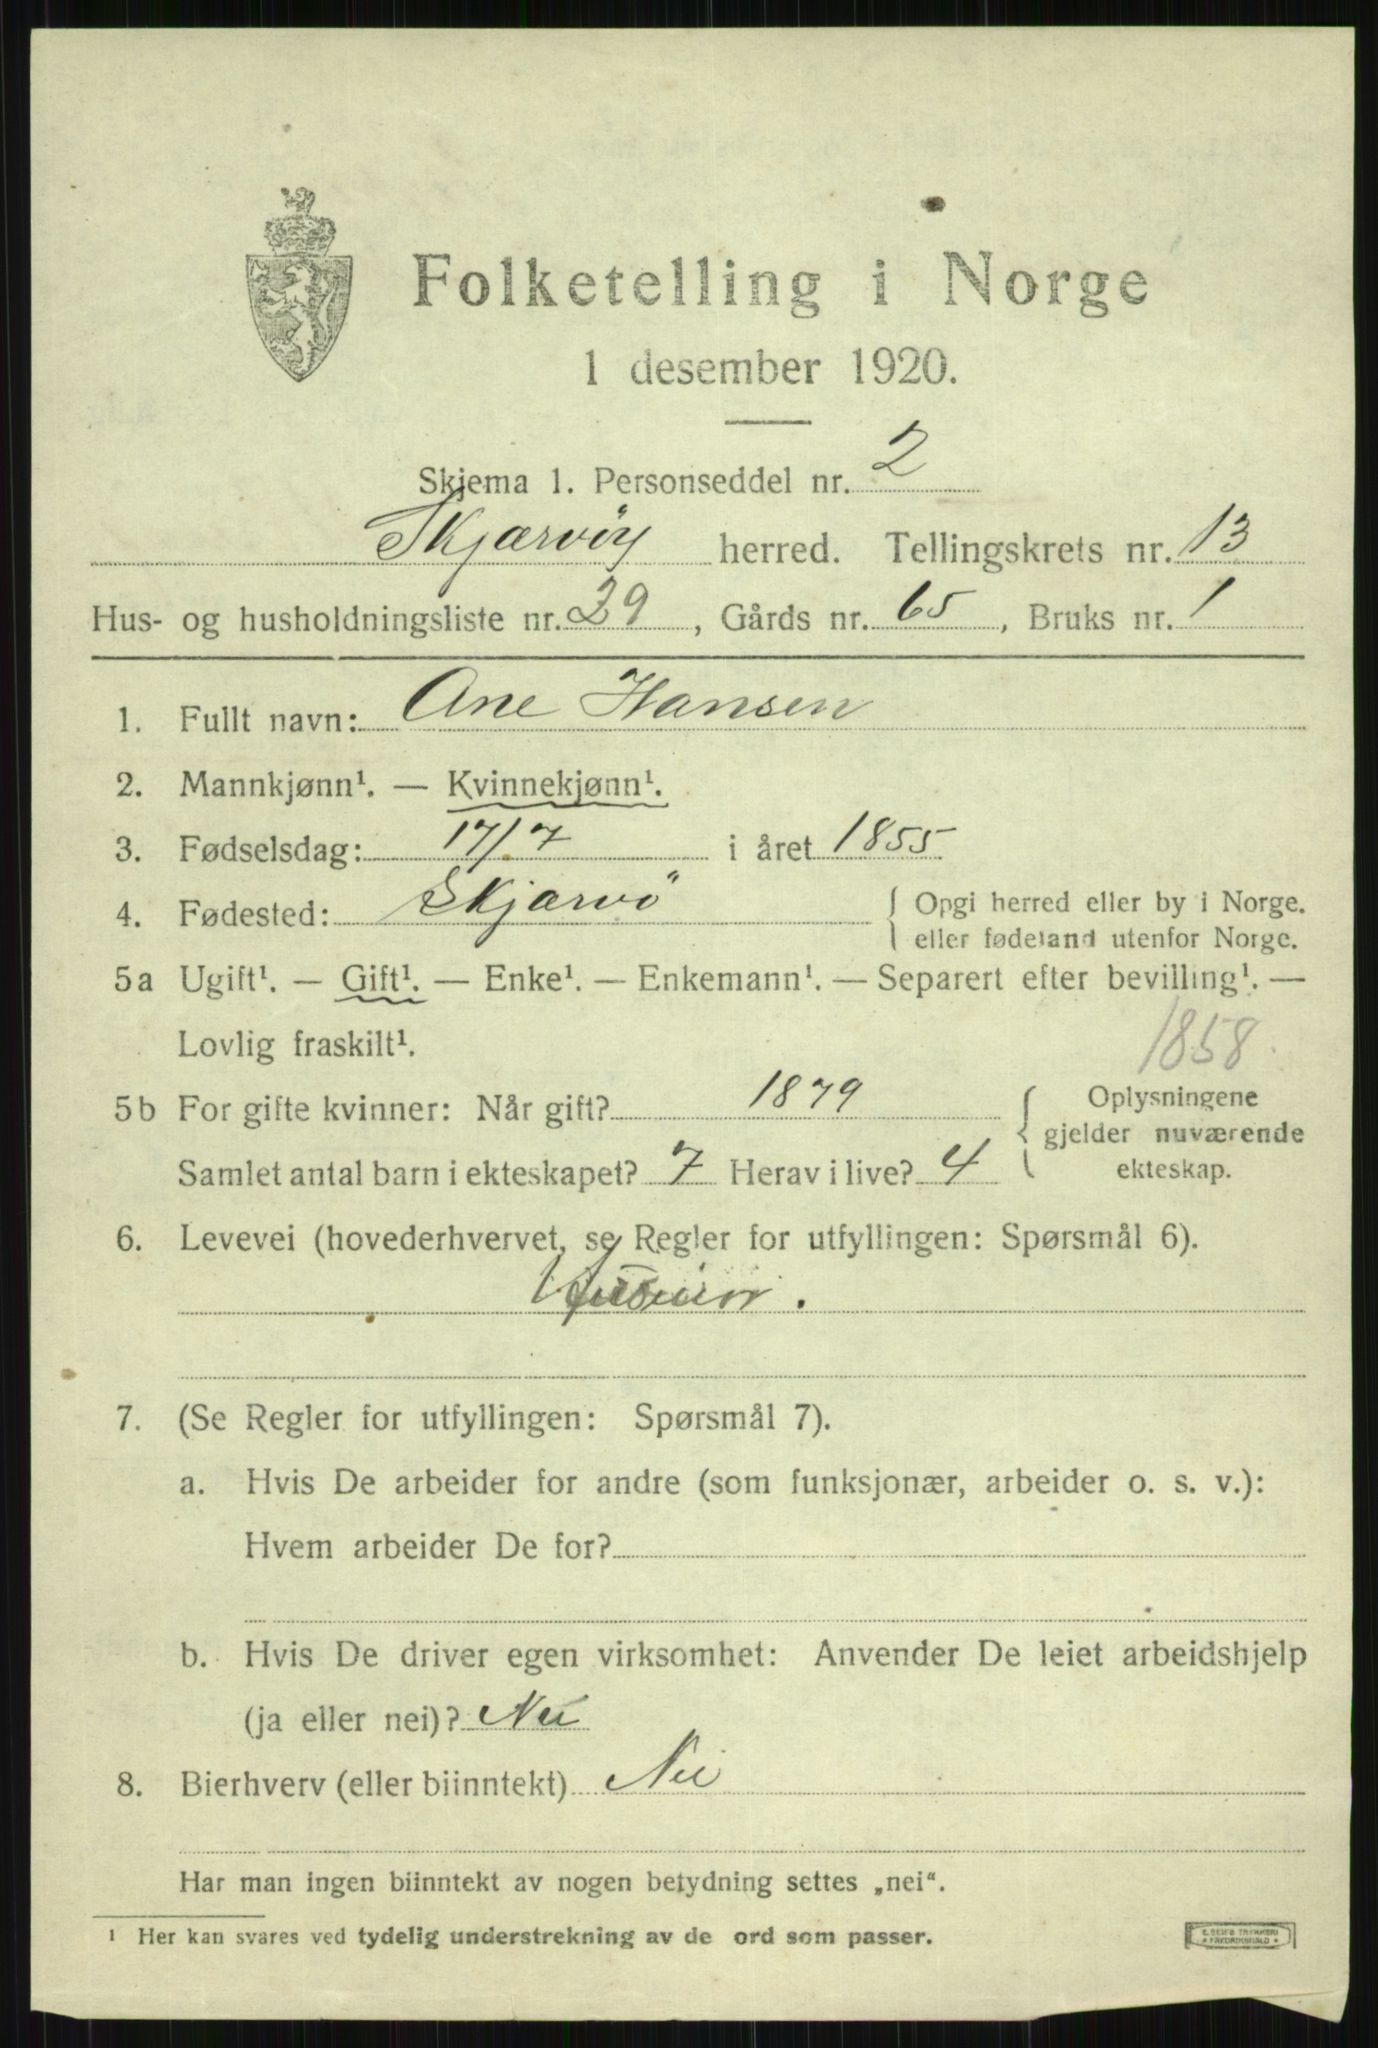 Folketelling i Norge
1 desember 1920.
Skjema 1. Personseddel nr. 2
Skjærvöy herred. Tellingskrets nr. 13
Hus- og husholdningsliste nr. 29, Gårds nr. 65, Bruks nr. 1
1. Fullt navn: Ane Hansen
2. Mannkjønn¹. — Kvinnekjønn¹.
3. Fødselsdag: 17/7 i året 1855
4. Fødested: Skjærvö { Opgi herred eller by i Norge.
eller fødeland utenfor Norge.
5a Ugift¹. — Gift¹. — Enke¹. — Enkemann¹. — Separert efter bevilling¹. —
Lovlig fraskilt¹.
1858.
5b For gifte kvinner: Når gift? 1879
Samlet antal barn i ekteskapet? 7 Herav i live? 4
{ Oplysningene
gjelder nuværende
ekteskap.
6. Levevei (hovederhvervet, se Regler for utfyllingen: Spørsmål 6).
7. (Se Regler for utfyllingen: Spørsmål 7).
a. Hvis De arbeider for andre (som funksjonær, arbeider o. s. v.):
Hvem arbeider De for?
b. Hvis De driver egen virksomhet: Anvender De leiet arbeidshjelp
(ja eller nei)? Nei
8. Bierhverv (eller biinntekt) Nei
Har man ingen biinntekt av nogen betydning settes „nei".
¹ Her kan svares ved tydelig understrekning av de ord som passer.